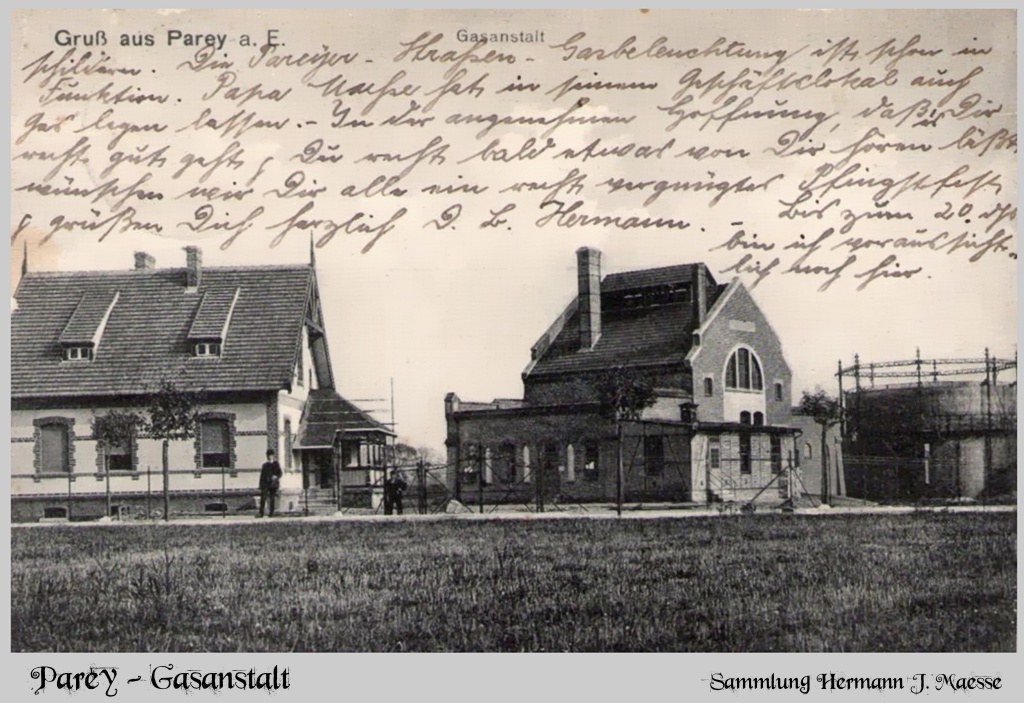 Gruß aus Parey a. E.
Gasanstalt
schildern. Die Pareyer-Straßen-Gasbeleuchtung ist schon in
Funktion. Papa hat in seinem Geschäftslokal auch
Gas legen lassen. - In der angenehmen Hoffnung, daß es Dir
recht gut geht, Du recht bald etwas von Dir hören läßt
wünschen wir Dir alle ein recht vergnügtes Pfingstfest
& grüßen Dich herzlich D. B. Hermann. - Bis zum 20. ds
bin ich voraussicht-
lich noch hier.
Parey - Gasanstalt
Sammlung Hermann J. Maesse